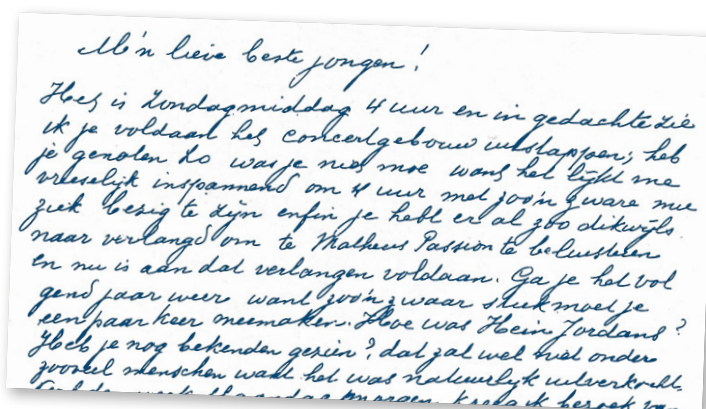 M'n lieve beste jongen!
Het is Zondagmiddag 4 uur en in gedachte zie
ik je voldaan het concertgebouw uitstappen; heb
je genoten Zo was je niet moe want het lijkt me
vreeselijk inspannend om 4 uur met zoo'n zware mu
ziek bezig te zijn enfin je hebt er al zoo dikwijls
naar verlangd om te Matheus Passion te beluisteren
en nu is aan dat verlangen voldaan. Ga je het vol
gend jaar weer want zoo'n zwaar stuk moet je
een paar keer meemaken. Hoe was Hein Jordans?
Heb je nog bekenden gezien?, dat zal wel niet onder
zooveel menschen want het was natuurlijk uitverkocht.
morgen kreeg ik bezoek va